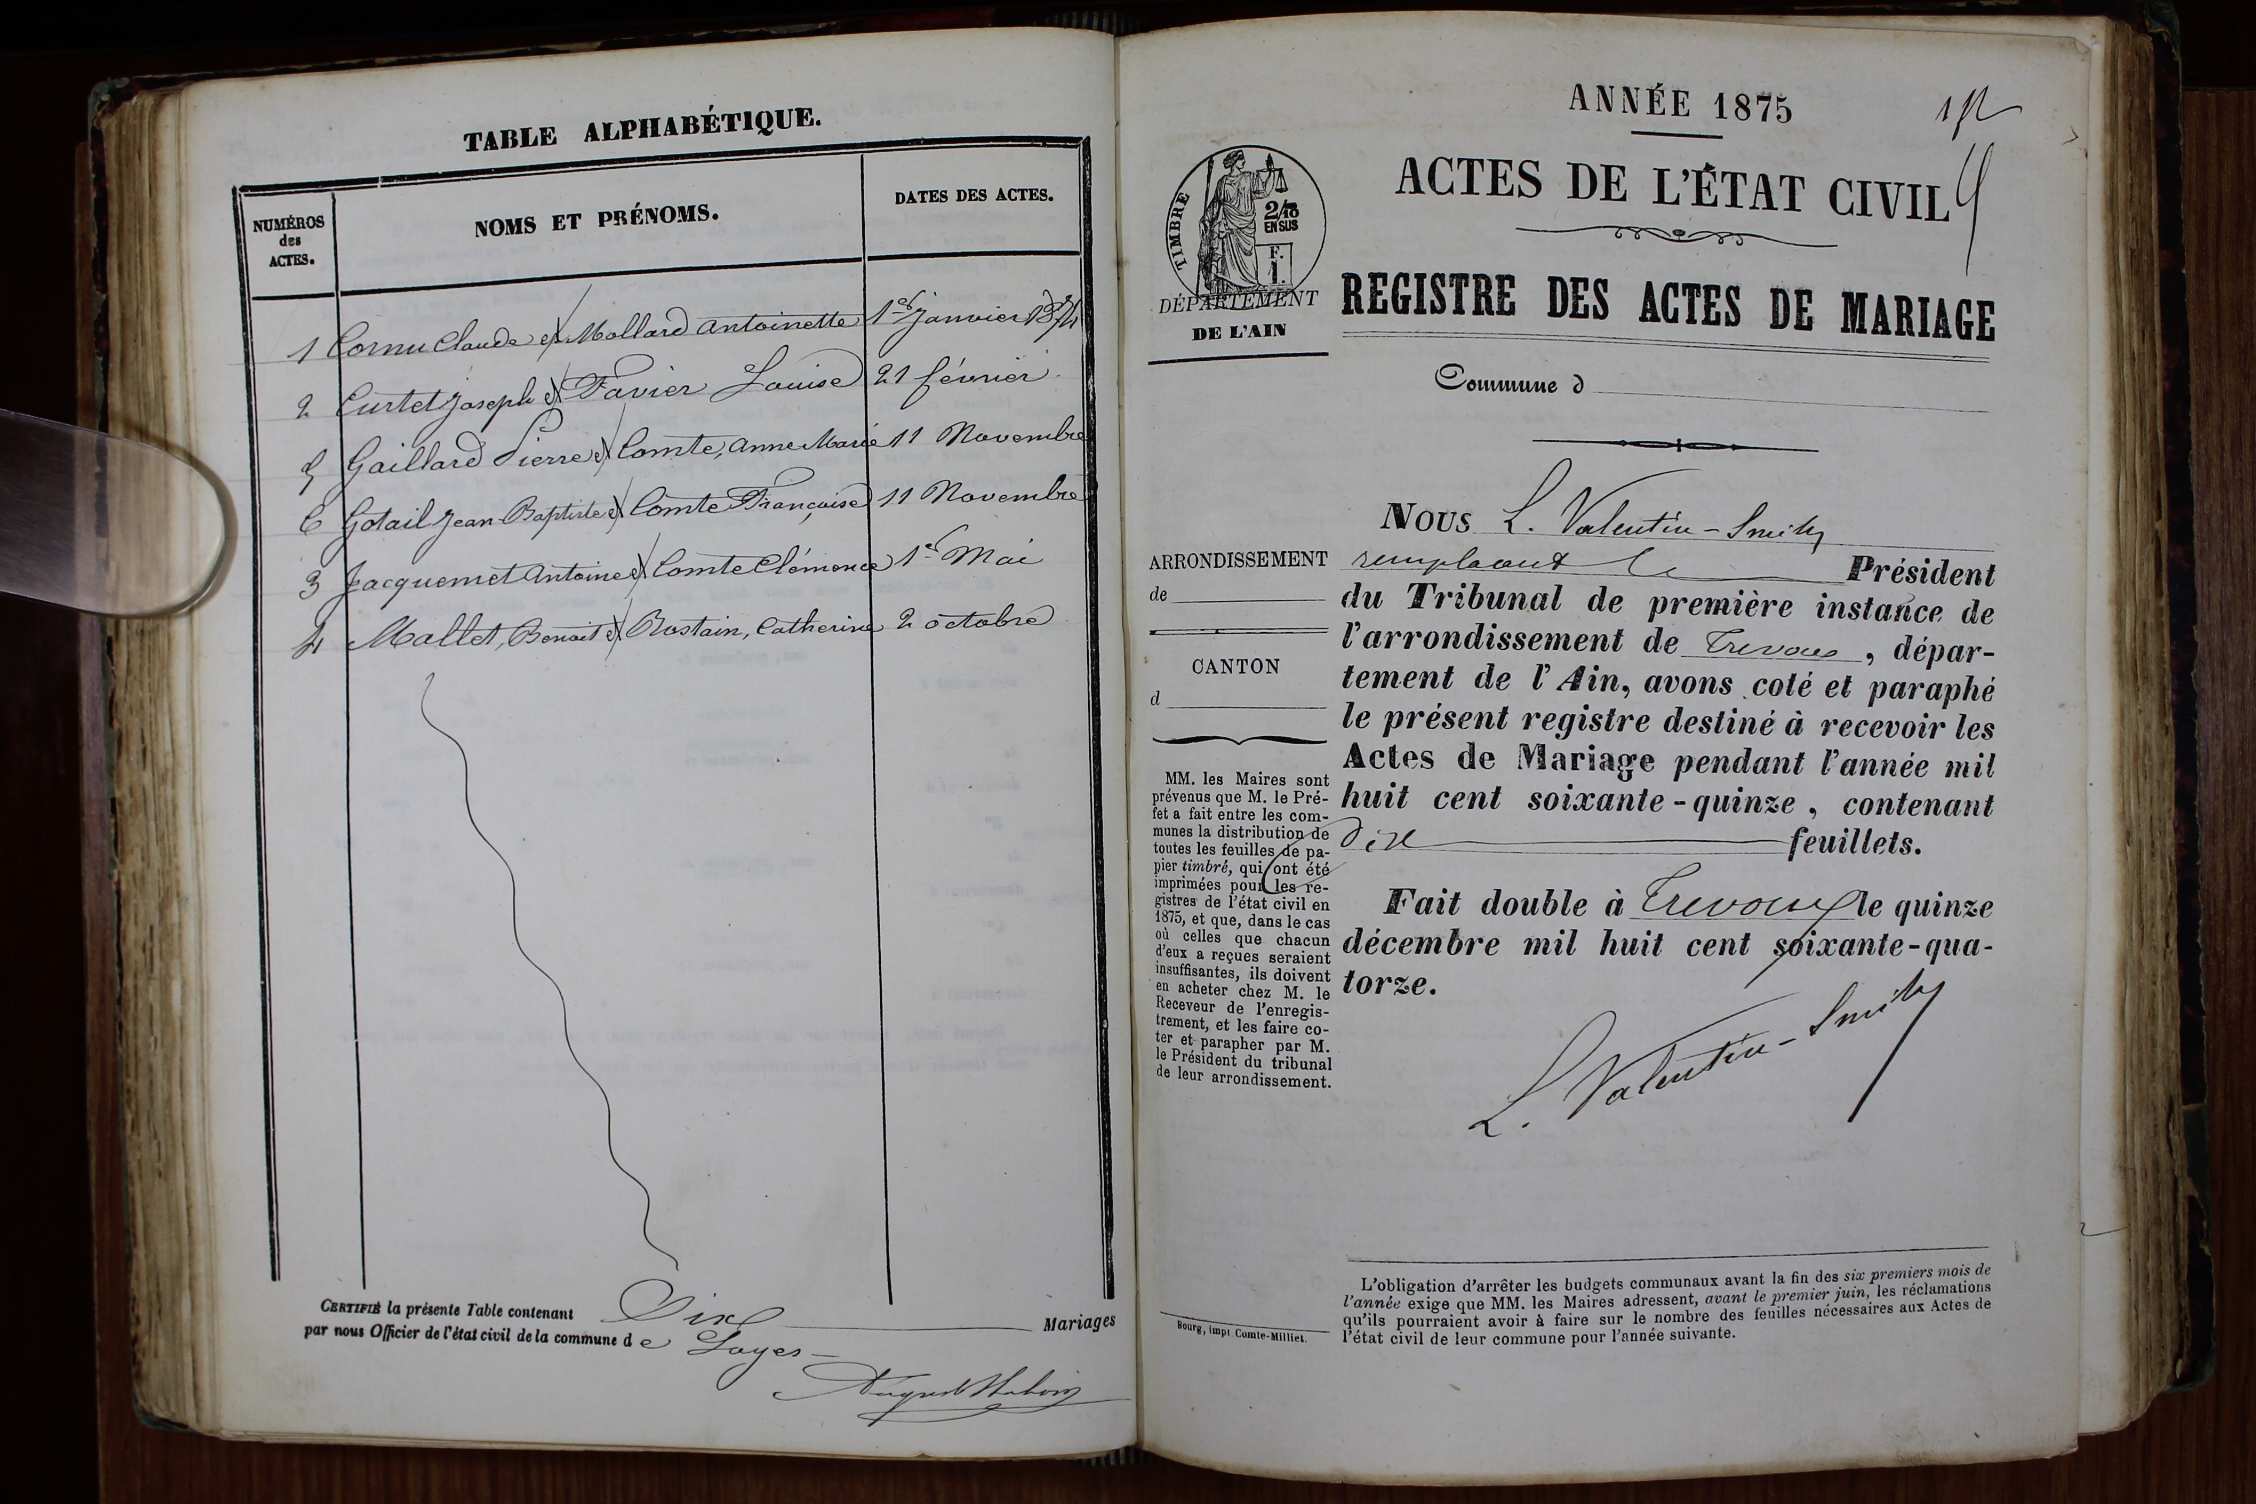 TABLE ALPHABÉTIQUE.
NUMÉROS des ACTES. NOMS ET PRÉNOMS. DATES DES ACTES.
1 Cornu Claude et Mollard Antoinette 1er janvier 1874
2 Curtet Joseph et Favier Louise 21 février
5 Gaillard Pierre et Comte, Anne Marie 11 Novembre
6 Gotail Jean-Baptiste et Comte Françoise 11 Novembre
3 Jacquemet Antoine et Comte Clémence 1er Mai
4 Mallet, Benoit et Rostain, Catherine 2 octobre
CERTIFIÉ la présente Table contenant Six Mariages
par nous Officier de l'état civil de la commune de Loyes
ANNÉE 1875
ACTES DE L'ÉTAT CIVIL
TIMBRE
2/10
EN SUS
F.
1.
DÉPARTEMENT
DE L'AIN
REGISTRE DES ACTES DE MARIAGE
Commune d
ARRONDISSEMENT
de
CANTON
d
MM. les Maires sont
prévenus que M. le Pré-
fet a fait entre les com-
munes la distribution de
toutes les feuilles de pa-
pier timbré, qui ont été
imprimées pour les re-
gistres de l'état civil en
1875, et que, dans le cas
où celles que chacun
d'eux a reçues seraient
insuffisantes, ils doivent
en acheter chez M. le
Receveur de l'enregis-
trement, et les faire co-
ter et parapher par M.
le Président du tribunal
de leur arrondissement.
NOUS L. Valentin-Smith
remplaçant le Président
du Tribunal de première instance de
l'arrondissement de Trevoux, dépar-
tement de l'Ain, avons coté et paraphé
le présent registre destiné à recevoir les
Actes de Mariage pendant l'année mil
huit cent soixante-quinze, contenant
dix feuillets.
Fait double à Trevoux le quinze
décembre mil huit cent soixante-qua-
torze.
L. Valentin-Smith
L'obligation d'arrêter les budgets communaux avant la fin des six premiers mois de
l'année exige que MM. les Maires adressent, avant le premier juin, les réclamations
qu'ils pourraient avoir à faire sur le nombre des feuilles nécessaires aux Actes de
l'état civil de leur commune pour l'année suivante.
Bourg, impr. Comte-Milliet.